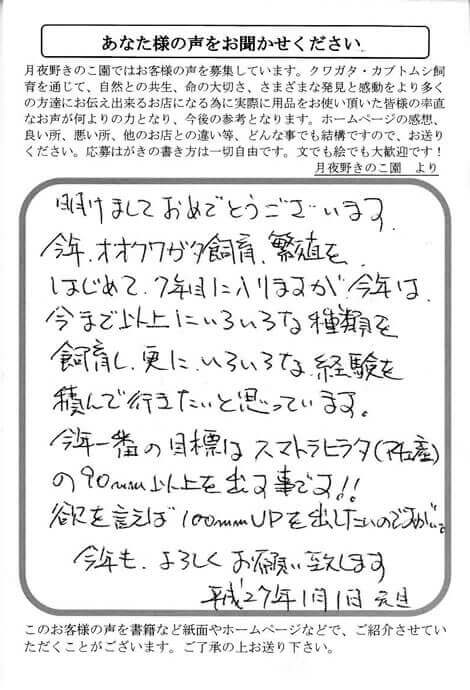 あなた様の声をお聞かせください
月夜野きのこ園ではお客様の声を募集しています。クワガタ・カブトムシ飼
育を通じて、自然との共生、命の大切さ、さまざまな発見と感動をより多く
の方達にお伝え出来るお店になる為に実際に用品をお使い頂いた皆様の率直
なお声が何よりの力となり、今後の参考となります。ホームページの感想、
良い所、悪い所、他のお店との違い等、どんな事でも結構ですので、お送り
ください。応募はがきの書き方は一切自由です。文でも絵でも大歓迎です！
月夜野きのこ園 より
明けましておめでとうございます。
今年、オオクワガタ飼育、繁殖を
はじめて、7年目に入りますが、今年は、
今まで以上にいろいろな種類を
飼育し、更に、いろいろな経験を
積んで行きたいと思っています。
今年一番の目標はスマトラヒラタ(アチェ産)
の90mm以上を出す事です!!
欲を言えば100mmUPを出したいのですが
今年も、よろしくお願い致します
平成27年1月1日 元旦
このお客様の声を書籍など紙面やホームページなどで、ご紹介させてい
ただくことがございます。ご了承の上お送り下さい。